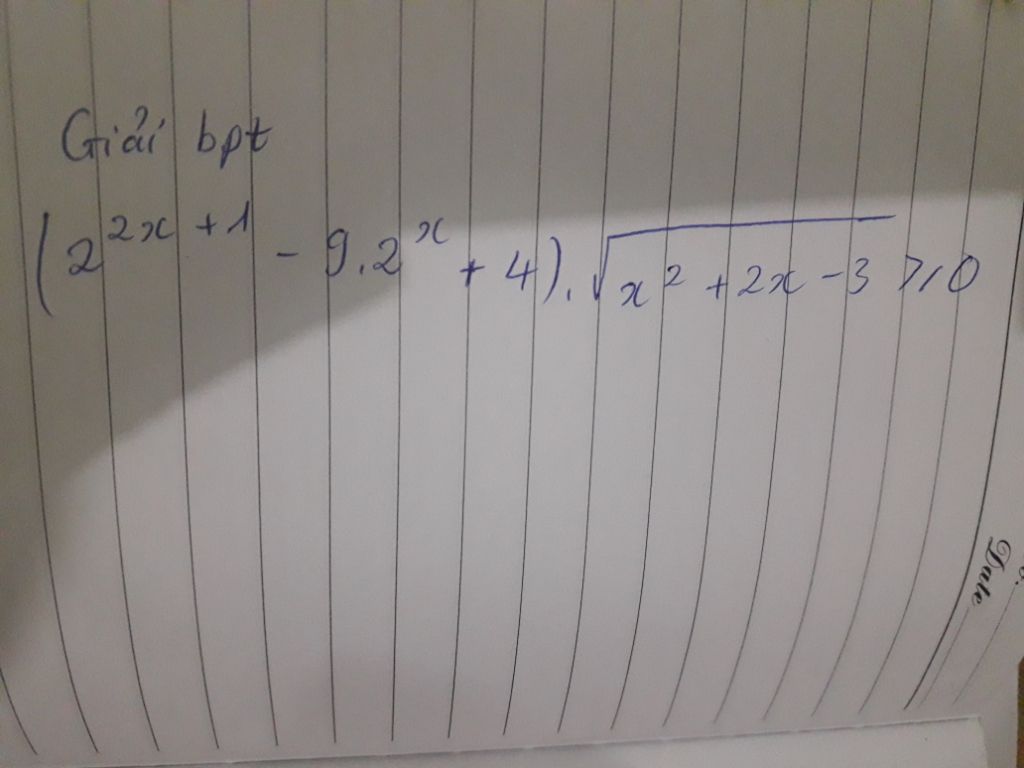 Giải bpt
(2^{2x+1} - 9.2^x + 4).√(x^2 + 2x - 3) ≥ 0
Date